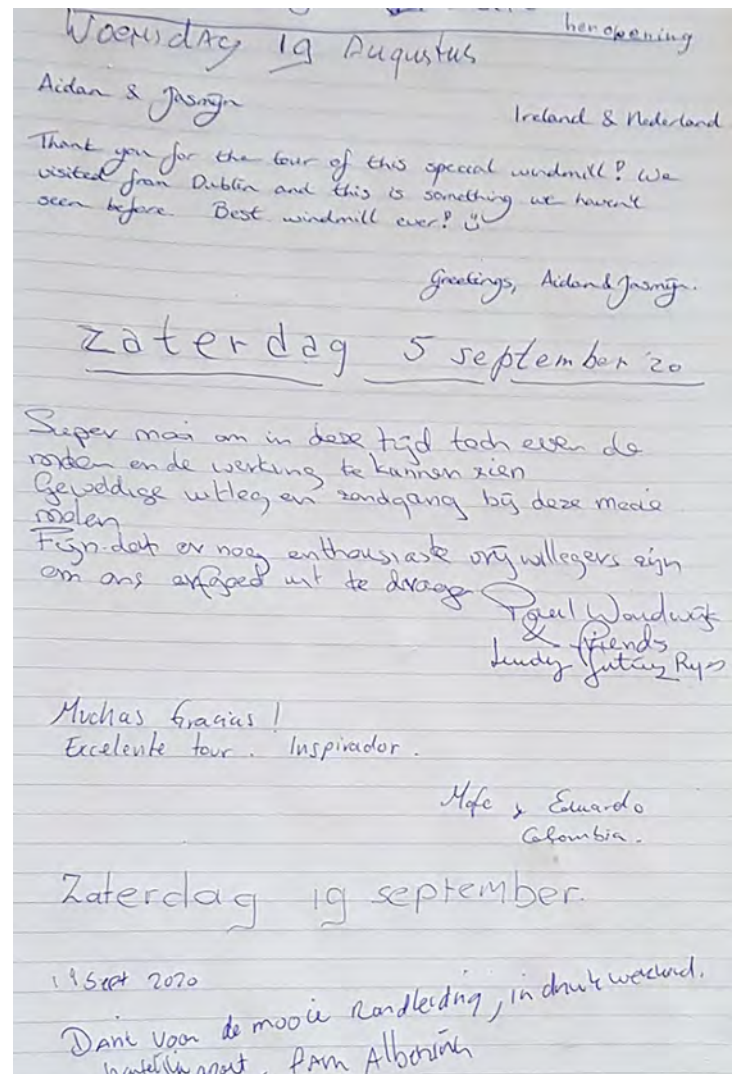 heropening
Woensdag 19 Augustus
Aidan & Jasmijn
Ireland & Nederland
Thank you for the tour of this special windmill! We
visited from Dublin and this is something we haven't
seen before. Best windmill ever!
Greetings, Aidan & Jasmijn.
Zaterdag 5 september '20
Super mooi om in deze tijd toch even de
molen en de werking te kunnen zien
Geweldige uitleg en rondgang bij deze mooie
molen
Fijn dat er nog enthousiaste vrijwillegers zijn
om ons erfgoed uit te dragen
Paul
& friends
Muchas Gracias!
Excelente tour. Inspirador.
& Eduardo
Colombia.
Zaterdag 19 september.
19 Sept 2020
Dank voor de mooie Rondleiding, indrukwekkend.